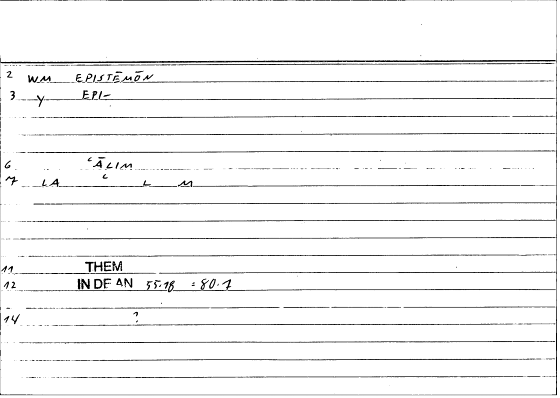 2 WM EPISTĒMŌN
3 Y EPI-
6 ʿĀLIM
7 LA ʿ L M
11 THEM
12 IN DE AN 55.18 = 80.1
14 ?